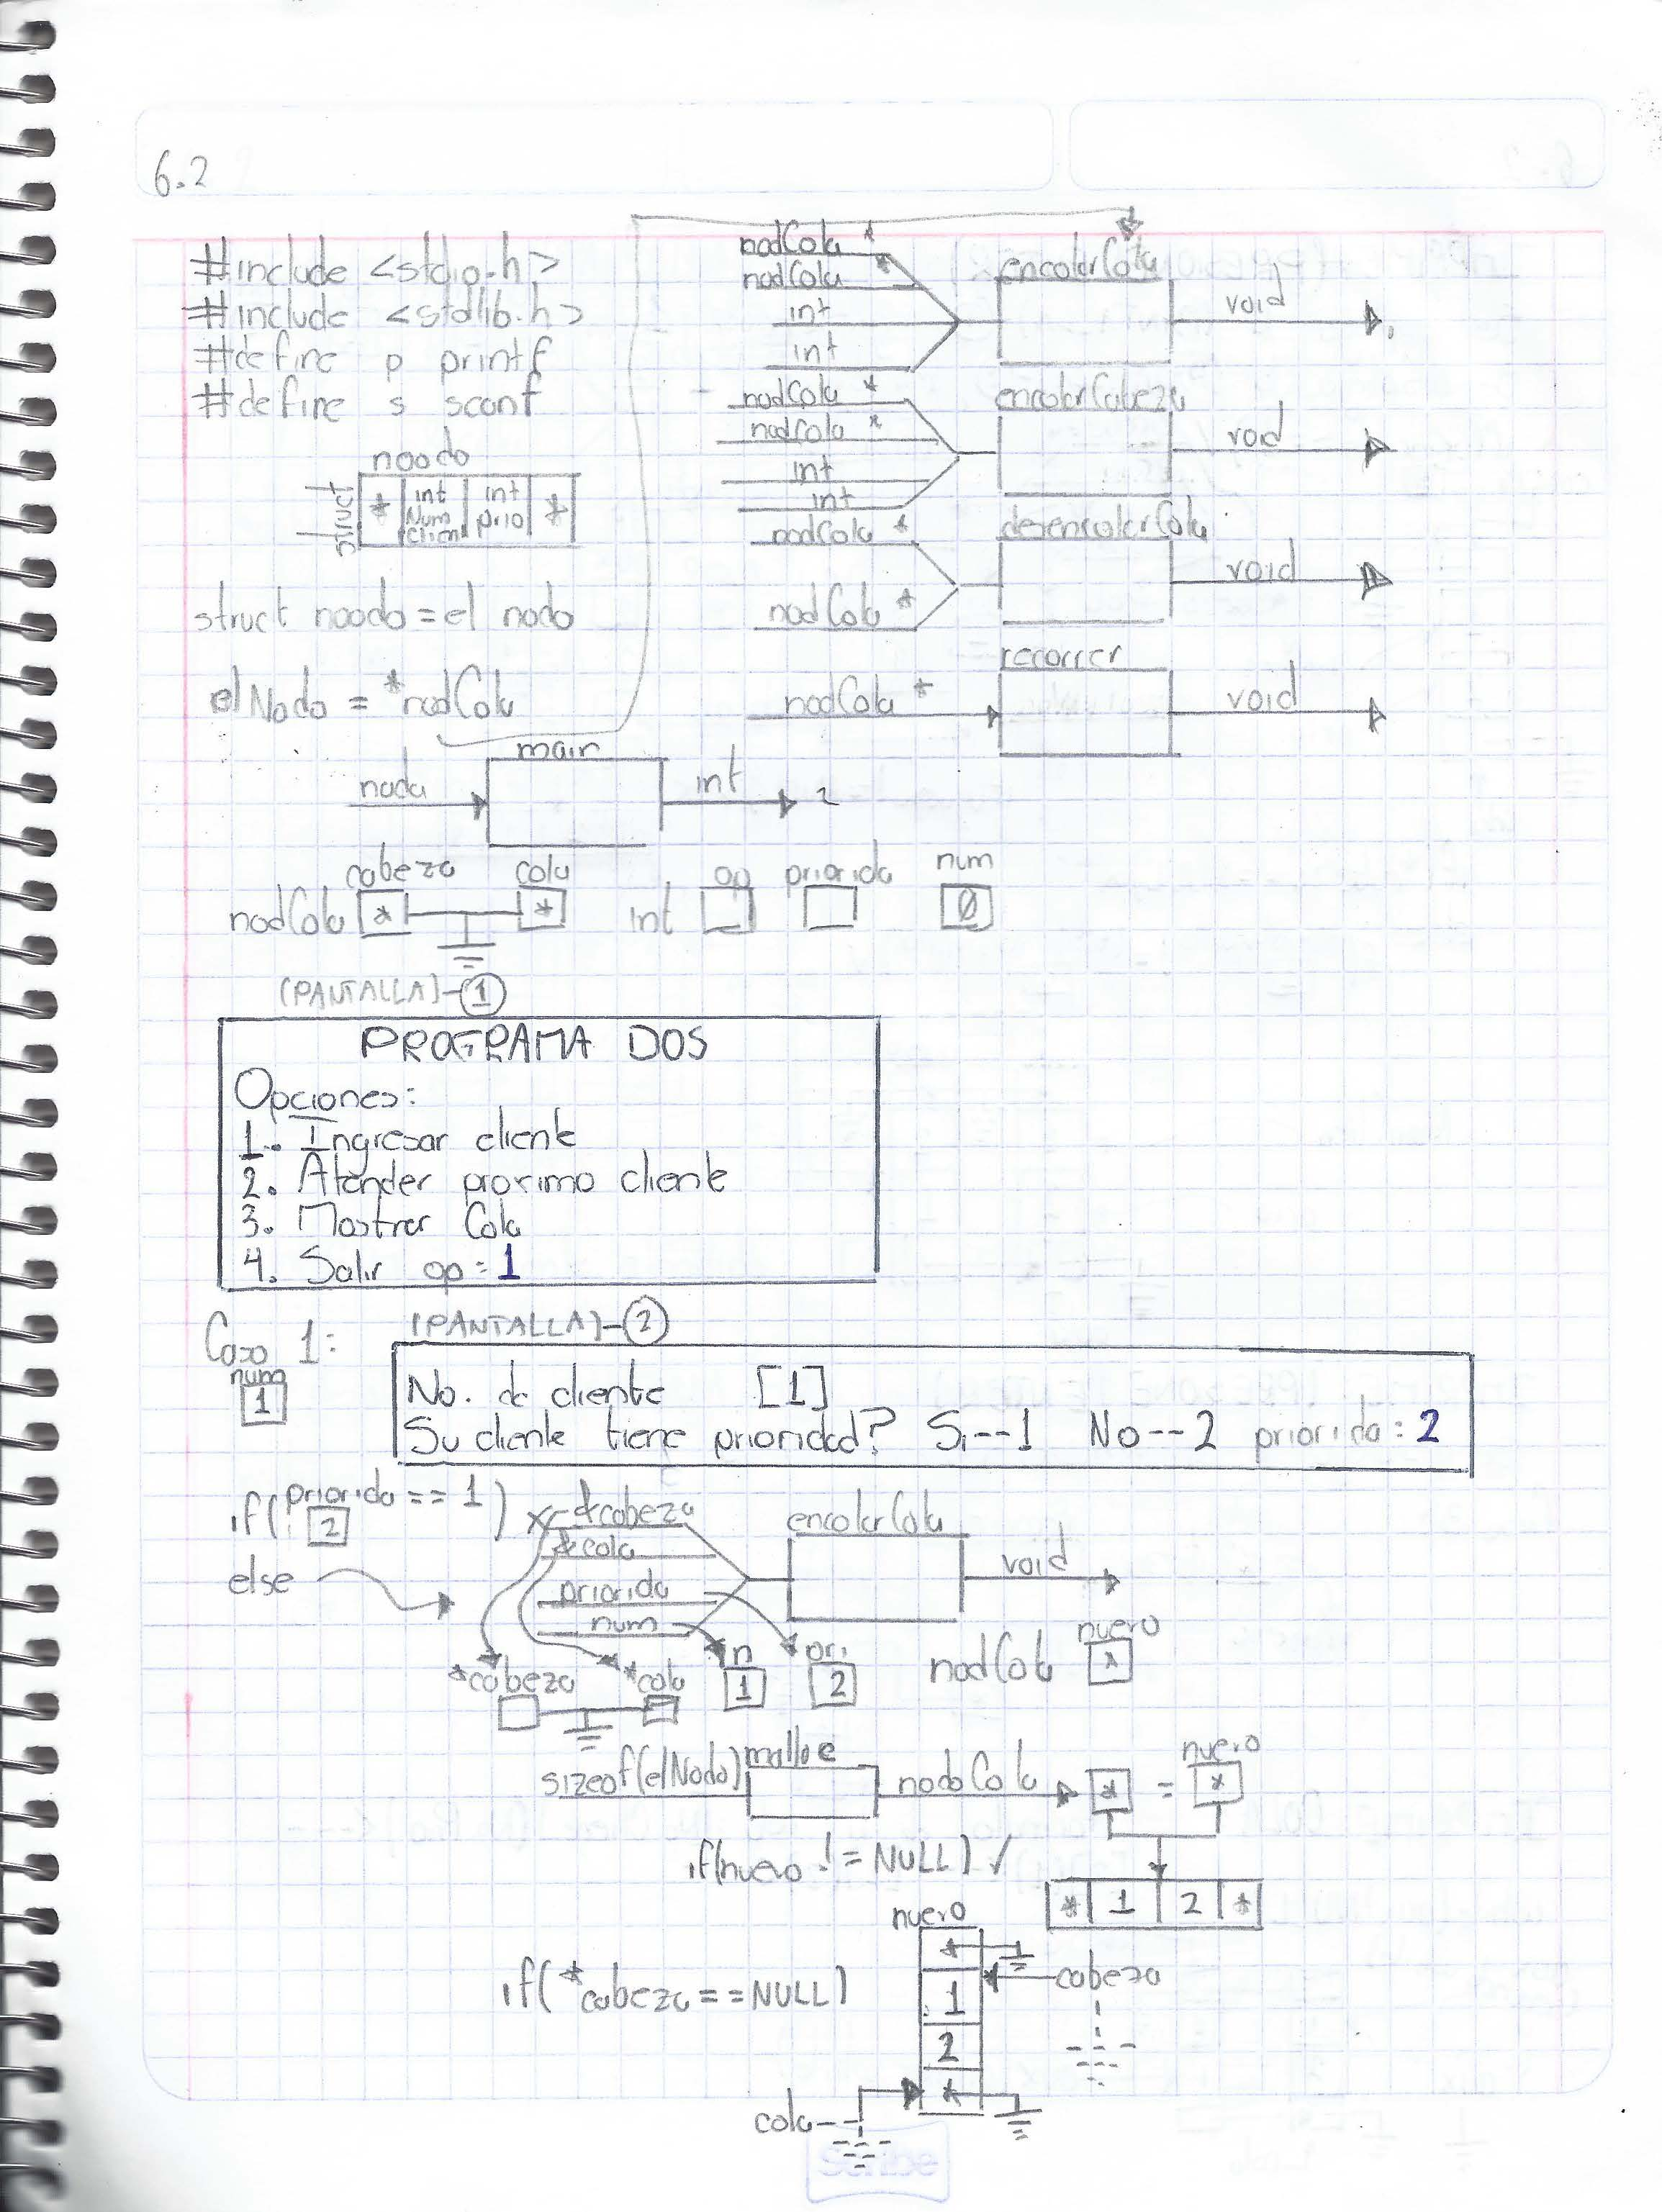 6.2
#include <stdio.h>
#include <stdlib.h>
#define p printf
#define s scanf
noodo
struct * int Num Client int prio *
struct noodo = el nodo
el Nodo = *nodCola
nodCola *
nodCola *
int
int
encolarCola
void
nodCola *
nodCola *
int
int
encolarCabeza
void
nodCola *
nodCola *
desencolarCola
void
nodCola *
recorrer
void
nada main int
cabeza cola op priorida num
nodCola * * int Ø
(PANTALLA)-1
PROGRAMA DOS
Opciones:
1.- Ingresar cliente
2. Atender proximo cliente
3. Mostrar Cola
4. Salir op = 1
Caso 1: (PANTALLA)-2
num
1
No. de cliente [1]
Su cliente tiene prioridad? Si--1 No--2 priorida: 2
if(priorida == 1) x
2
else
&cabeza
&cola
priorida
num
encolarCola
void
*cabeza *cola n pri nodCola nuevo
1 2 *
sizeof(elNodo) malloc nodoCola * = nuevo *
if(nuevo != NULL) ✓
* 1 2 *
nuevo
if(*cabeza == NULL)
*
1
2
*
cabeza
cola
Scribe